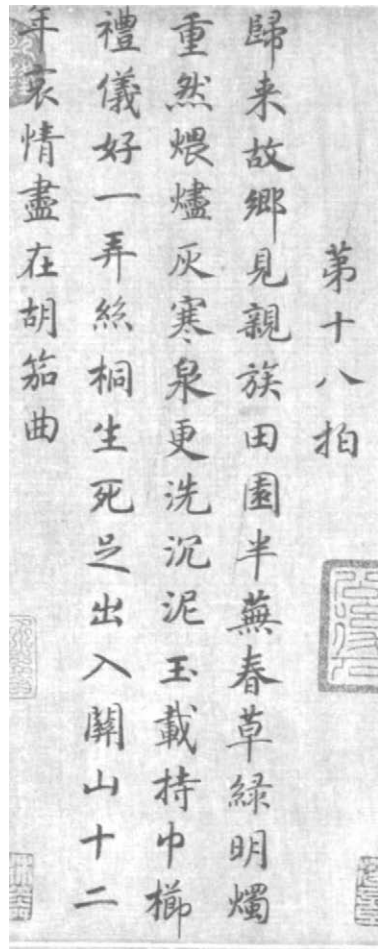 第十八拍
歸来故郷見親族田園半蕪春草緑明燭
重然煨燼灰寒泉更洗沉泥玉載持巾櫛
禮儀好一弄絲桐生死足出入關山十二
年哀情盡在胡笳曲